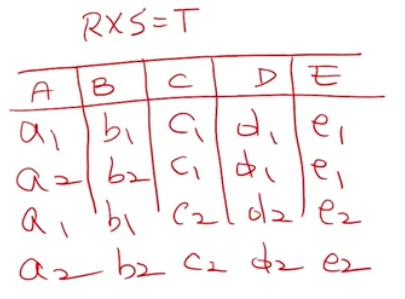 RXS=T
A B C D E
a1 b1 c1 d1 e1
a2 b2 c1 d1 e1
a1 b1 c2 d2 e2
a2 b2 c2 d2 e2